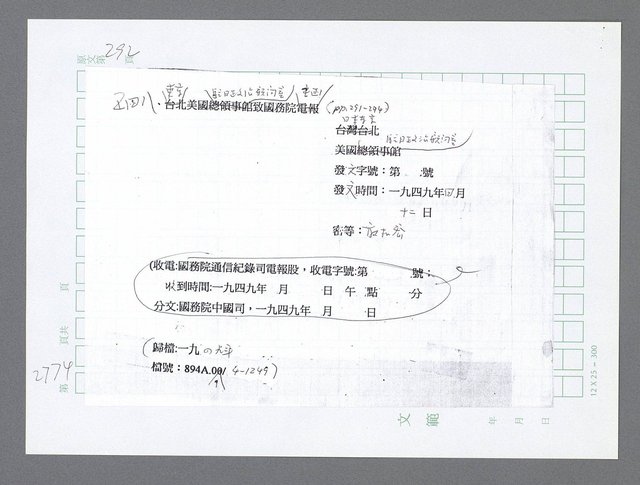 原文第292頁
五四八、台北美國總領事館致國務院電報 (pp.291-294)
東京
駐日政治顧問室
日本東京
台灣台北
駐日政治顧問室
美國總領事館
發文字號：第 號
發文時間：一九四九年四月
十二日
密等：
(收電:國務院通信紀錄司電報股，收電字號:第 號：
收到時間:一九四九年 月 日 午 點 分
分文:國務院中國司，一九四九年 月 日
(歸檔:一九四九年
檔號：894A.00/ 4-1249)
頁
頁共
第2774
12 X 25 - 300
文 範
年 月 日